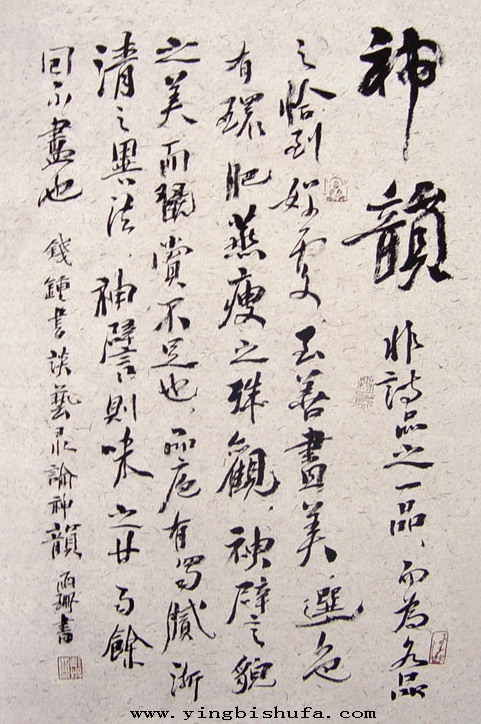 神韻 非詩品之一品，而為各品
之恰到好處，至善盡美。選色
有環肥燕瘦之殊觀，神譬貌
之美而翫賞不足也，品庖有蜀膩浙
清之異法，神譬則味之甘而餘
回不盡也 錢鍾書談藝錄論神韻 雨珊書
www.yingbishufa.com